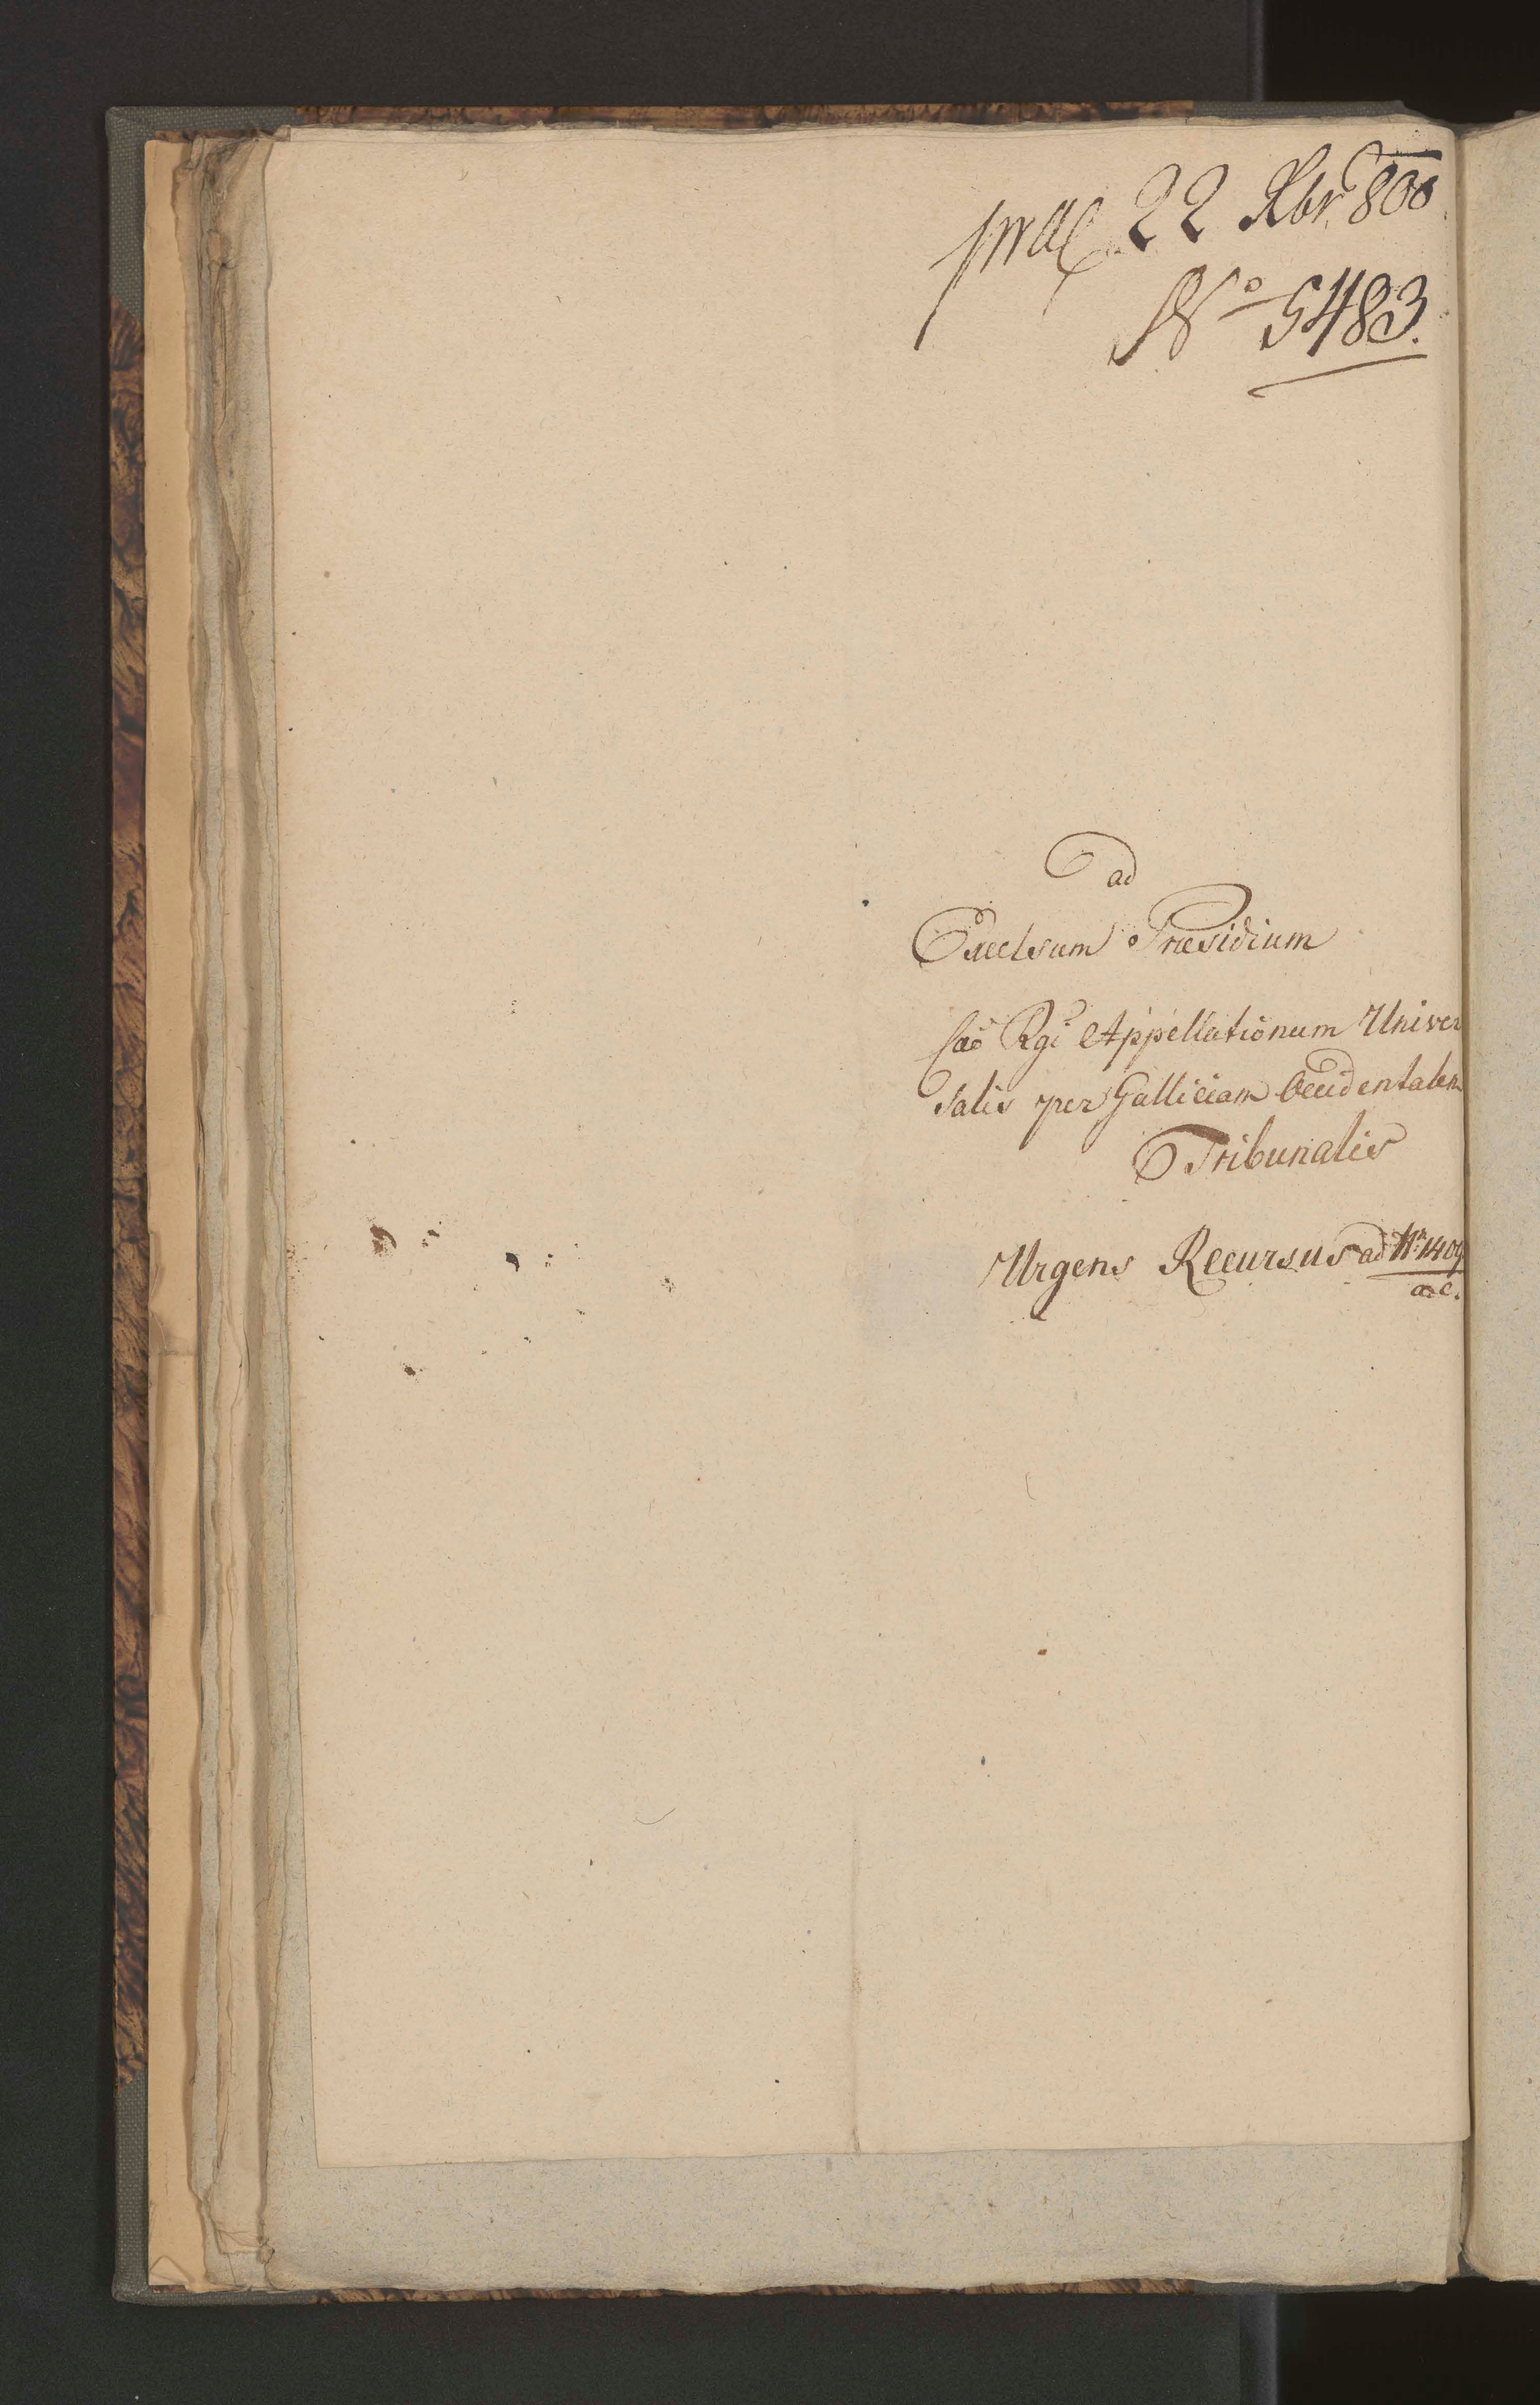 22 Xbr 800
No 5483.
ad
Excelsum Præsidium
Cæo Rgi Appellationum Univer
salis per Galliciam Occidentalem
Tribunalis
Urgens Recursus ad Nr 1409
a. c.